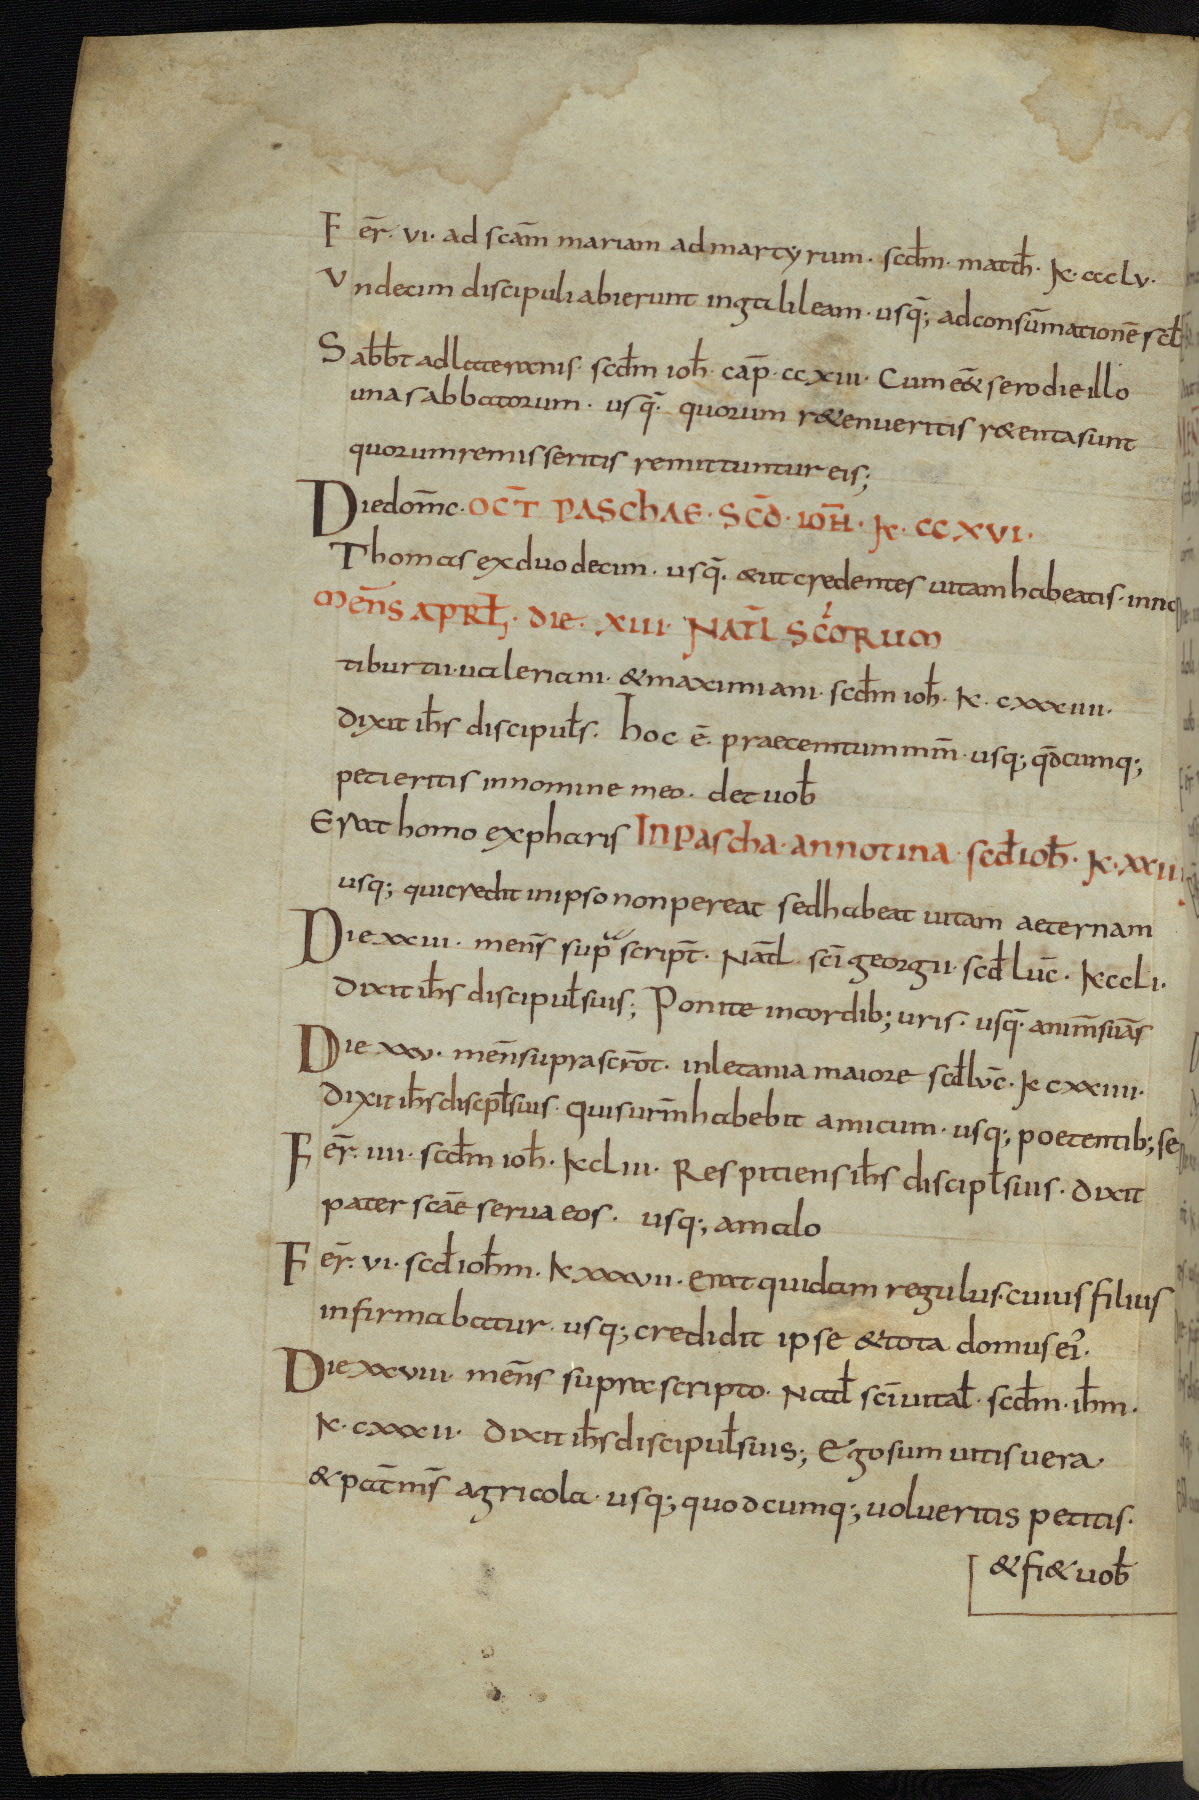 Fer̄. vi. ad scām mariam admartyrum. scđm. matth̄. K. ccclv.
Vndecim discipuli abierunt ingalileam. usq̄; adconsūmationē scł
Sabb̄t adlateranis. scđm ioh̄. cap̄. ccxiii. Cum eēt sero die illo
una sabbatorum. usq̄. quorum r&enueritis r&enta sunt
quorum remisseritis remittuntur eis;
Diedom̄c. OCT̄ PASCHAE. SCD̄. IOH̄. K. CCXVI.
Thomas exduodecim. usq̄. &ut credentes uitam habeatis. inno
MEN̄S APRŁ. DIE. XIII. NAT̄L SC̄ORUM
tiburtii. ualeriani. &maximiani. scđm ioh̄. K. cxxxiiii.
dixit ih̄s discipułs. hoc ē. praeceptum m̄m. usq; q̄dcumq;
petieritis innomine meo. det uob̄
Erat homo expharis INpascha. annotina. scđ ioh̄. K. xxiii
usq; quicredit inipso non pereat sedhabeat uitam aeternam
Die xxiii. men̄s sup̄ascrip̄t. Nat̄l. sc̄i georgii. scđ luc̄. K ccli.
dixit ih̄s discipułsuis; Ponite incordib; uris. usq̄. anim̄suās
Die xxv. men̄suprascrōt. inletania maiore scđ luc̄. K cxxiiii.
dixit ih̄s discpłsuis. quisurm̄ habebit amicum. usq; poetentib; se
Fer̄. iiii. scđm ioh̄. K cliii. Respitiens ih̄s discipłsuis. dixit
pater scāe serua eos. usq; amalo
Fer̄. vi. scđ ioh̄m. K xxxvii. erat quidam regulus. cuius filius
infirmabatur. usq; credidit ipse &tota domus ei.
Die xxviii. men̄s suprascripto. Natł sc̄i uitał. scđm. ih̄m.
K. cxxxii. dixit ih̄s discipułsuis; Ego sum uitis uera
&pat̄ m̄s agricola. usq; quodcumq; uolueritis petitis.
&fi& uob̄